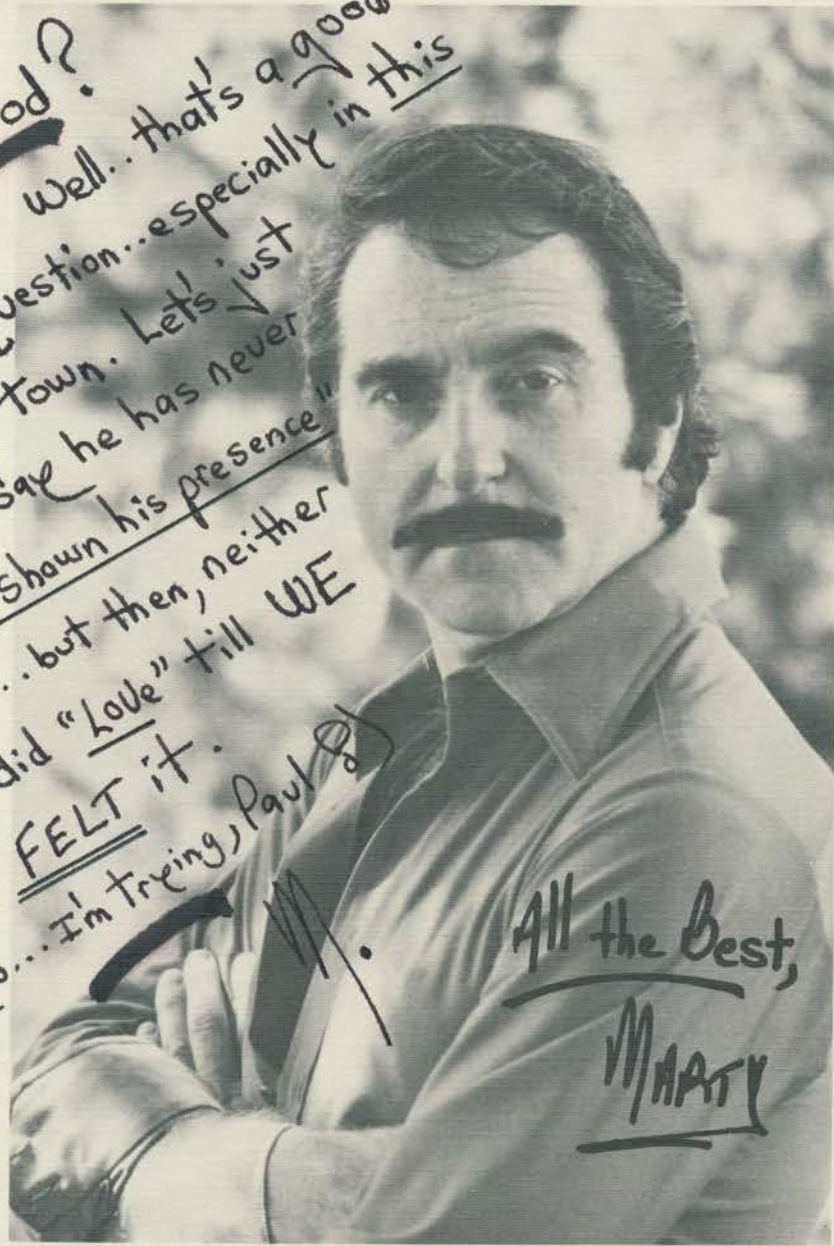 od?
Well.. that's a good
uestion.. especially in this
Town. Let's just
say he has never
shown his presence"
... but then, neither
did "Love" till WE
FELT it.
... I'm trying, Paul
M.
All the Best,
MARTY